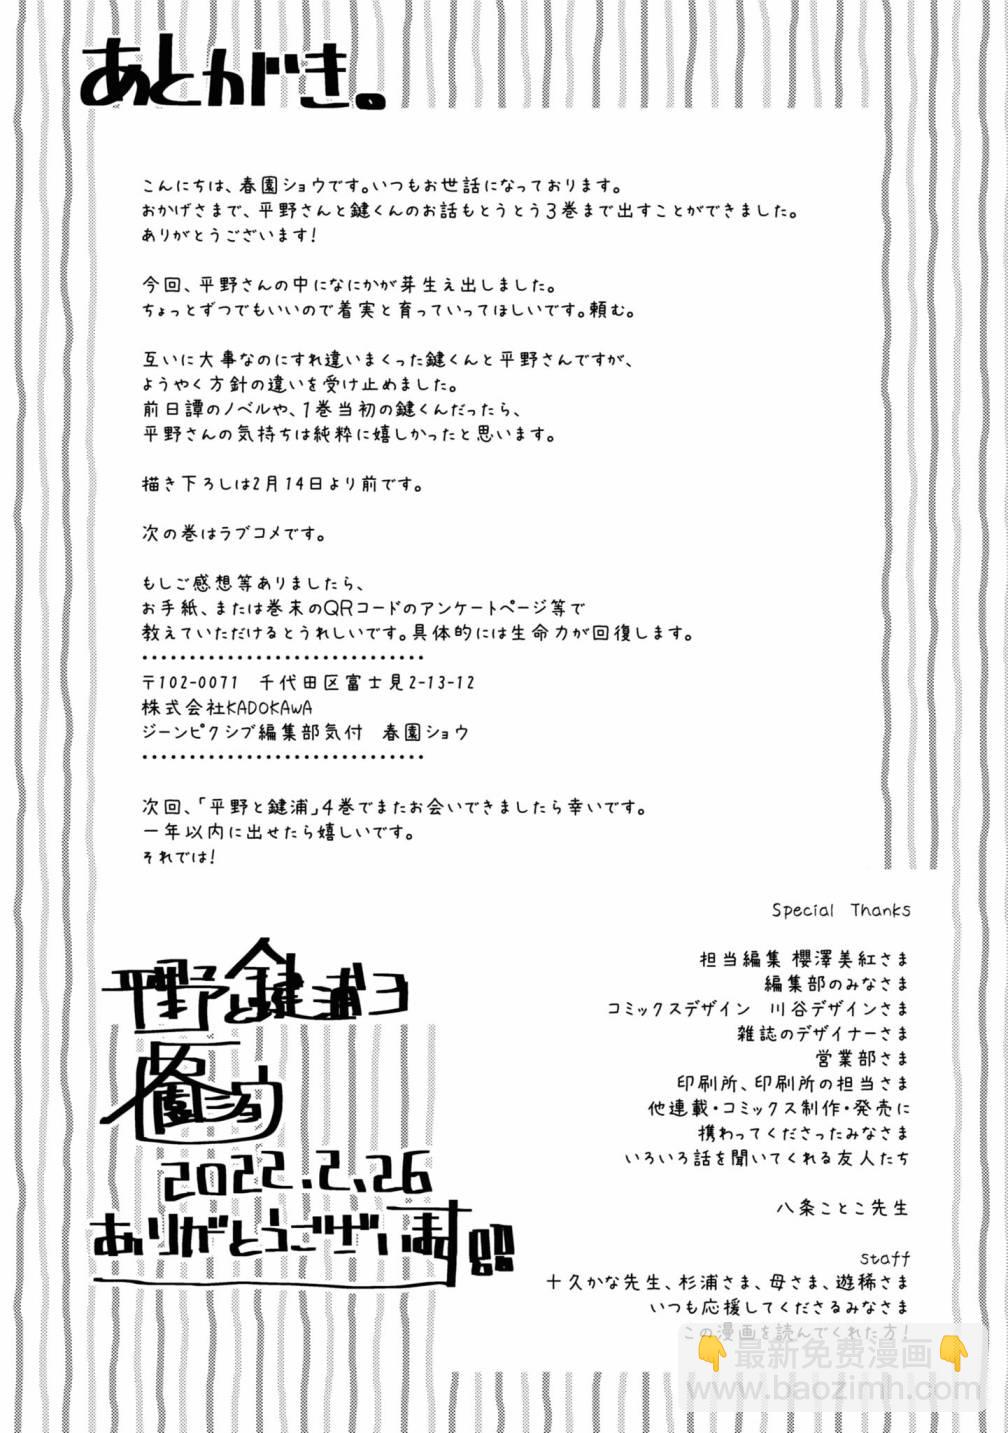 あとがき。
こんにちは、春園ショウです。いつもお世話になっております。
おかげさまで、平野さんと鍵くんのお話もとうとう3巻まで出すことができました。
ありがとうございます!
今回、平野さんの中になにかが芽生え出しました。
ちょっとずつでもいいので着実と育っていってほしいです。頼む。
互いに大事なのにすれ違いまくった鍵くんと平野さんですが、
ようやく方針の違いを受け止めました。
前日譚のノベルや、1巻当初の鍵くんだったら、
平野さんの気持ちは純粋に嬉しかったと思います。
描き下ろしは2月14日より前です。
次の巻はラブコメです。
もしご感想等ありましたら、
お手紙、または巻末のQRコードのアンケートページ等で
教えていただけるとうれしいです。具体的には生命力が回復します。
〒102-0071 千代田区富士見2-13-12
株式会社KADOKAWA
ジーンピクシブ編集部気付 春園ショウ
次回、「平野と鍵浦」4巻でまたお会いできましたら幸いです。
一年以内に出せたら嬉しいです。
それでは!
平野と鍵浦3
春園ショウ
2022.2.26
ありがとうございます!!
Special Thanks
担当編集 櫻澤美紅さま
編集部のみなさま
コミックスデザイン 川谷デザインさま
雑誌のデザイナーさま
営業部さま
印刷所、印刷所の担当さま
他連載・コミックス制作・発売に
携わってくださったみなさま
いろいろ話を聞いてくれる友人たち
八条ことこ先生
staff
十久かな先生、杉浦さま、母さま、遊稀さま
いつも応援してくださるみなさま
この漫画を読んでくれた方!
👇最新免费漫画👇
www.baozimh.com